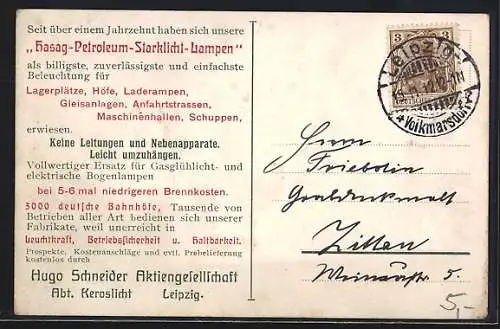 Seit über einem Jahrzehnt haben sich unsere
„Hasag-Petroleum-Starklicht-Lampen"
als billigste, zuverlässigste und einfachste
Beleuchtung für
Lagerplätze, Höfe, Laderampen,
Gleisanlagen, Anfahrtstrassen,
Maschinenhallen, Schuppen,
erwiesen.
Keine Leitungen und Nebenapparate.
Leicht umzuhängen.
Vollwertiger Ersatz für Gasglühlicht- und
elektrische Bogenlampen
bei 5-6 mal niedrigeren Brennkosten.
5000 deutsche Bahnhöfe, Tausende von
Betrieben aller Art bedienen sich unserer
Fabrikate, weil unerreicht in
Leuchtkraft, Betriebssicherheit u. Haltbarkeit.
Prospekte, Kostenanschläge und evtl. Probelieferung
kostenlos durch
Hugo Schneider Aktiengesellschaft
Abt. Keroslicht Leipzig.
3 3
Leipzig
Volkmarsdorf
Herrn
Zittau
5.
5,-